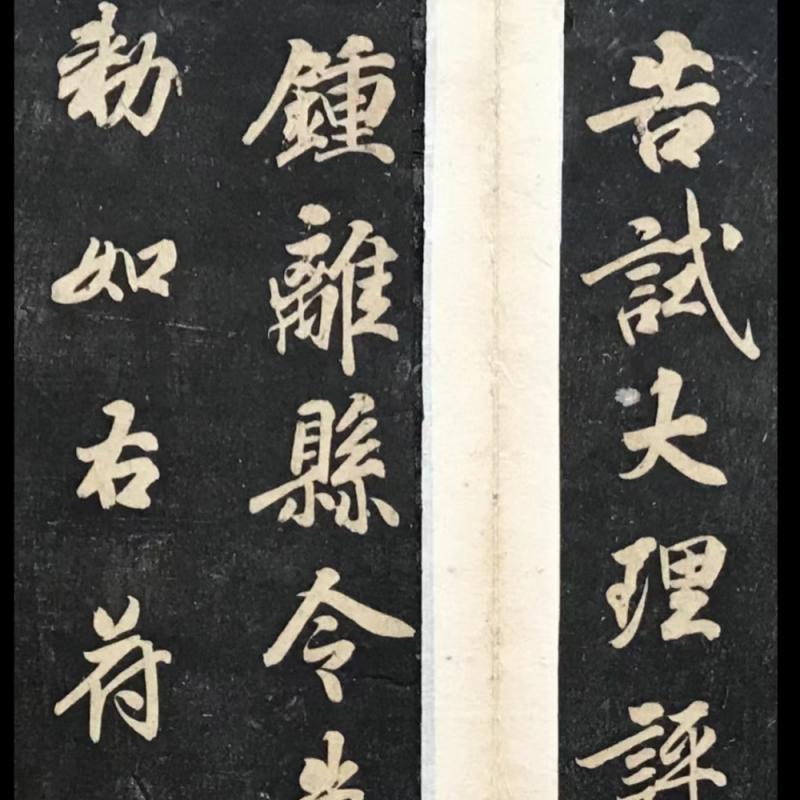 告試大理評
鍾離縣令
勅如右符